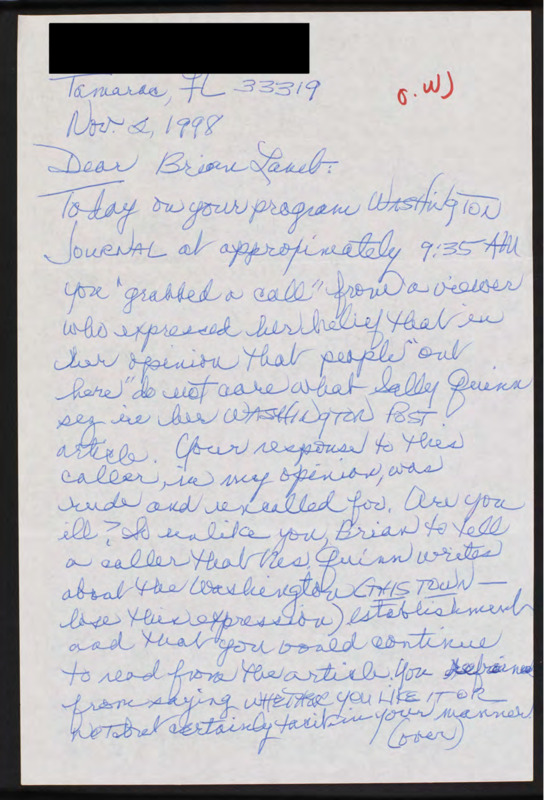 Tamarac, FL 33319
O.W)
Nov. 2, 1998
Dear Brian Lamb:
Today on your program WASHINGTON
JOURNAL at appropimately 9:35 AM
you "grabbed a call" from a viewer
who expressed her belief that in
her opinion that people "out
here" do not care what Sally Quinn
sez in her WASHINGTON POST
article. Your response to this
caller, in my opinion, was
rude and uncalled for. Are you
ill? So unlike you, Brian to tell
a caller that Ms. Quinn writes
about the Washington (THIS TOWN —
lose this expression) establishment
and that you would continue
to read from the article. You
from saying WHETHER YOU LIKE IT OR
not but certainly tacit in your manner.
(over)